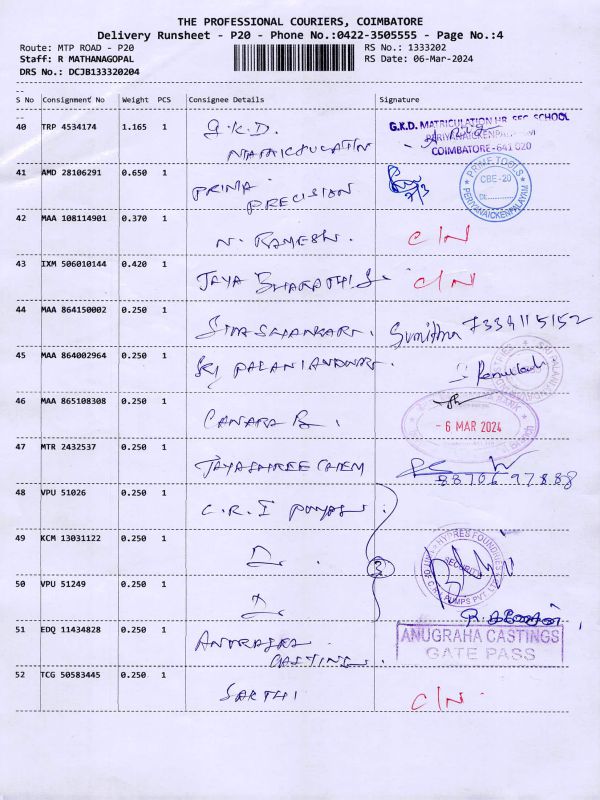 THE PROFESSIONAL COURIERS, COIMBATORE
Delivery Runsheet - P20 - Phone No.:0422-3505555 - Page No.:4
Route: MTP ROAD - P20 RS No.: 1333202
Staff: R MATHANAGOPAL RS Date: 06-Mar-2024
DRS No.: DCJB133320204
S No Consignment No Weight PCS Consignee Details Signature
40 TRP 4534174 1.165 1 G.K.D. G.K.D. MATRICULATION HR. SEC. SCHOOL
COIMBATORE-641 020
41 AMD 28106291 0.650 1 PRIMA PRECISION PRIME TOOLS CBE-20 PERIYANAICKENPALAYAM
42 MAA 108114901 0.370 1 N. RAMESH. C/N
43 IXM 506010144 0.420 1 JAYA BHARATHI. C/N
44 MAA 864150002 0.250 1 SIVA SHANKARI. Sumithra 7339115152
45 MAA 864002964 0.250 1 SRI PALANIANDAVAR.
46 MAA 865108308 0.250 1 CANARA B. - 6 MAR 2024
47 MTR 2432537 0.250 1 JAYASHREE CHEM 88706 97888
48 VPU 51026 0.250 1 C.R.I PUMPS
49 KCM 13031122 0.250 1 HYPRES FOUNDRIES SECURITY
50 VPU 51249 0.250 1
51 EDQ 11434828 0.250 1 ANUGRAHA CASTING. ANUGRAHA CASTINGS
GATE PASS
52 TCG 50583445 0.250 1 SARTHI C/N